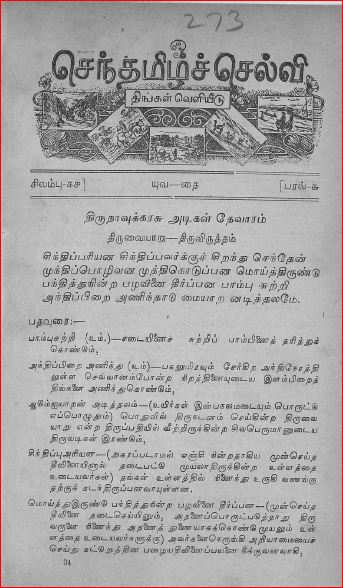 273
செந்தமிழ்ச் செல்வி
திங்கள் வெளியீடு
சிலம்பு-கச] யுவ—தை [பரல்-சு
திருநாவுக்கரசு அடிகள் தேவாரம்
திருவையாறு—திருவிருத்தம்
சிந்திப்பரியன சிந்திப்பவர்க்குச் சிறந்து செந்தேன்
முந்திப்பொழிவன முத்திகொடுப்பன மொய்த்திருண்டு
பந்தித்துநின்ற பழவினை தீர்ப்பன பாம்பு சுற்றி
அந்திப்பிறை அணிந்தாடு மையாற னடித்தலமே.
பதவுரை:—
பாம்புசுற்றி (உம்.)—சடையினைச் சுற்றிப் பாம்பினைத் தரித்துக்
கொண்டும்,
அந்திப்பிறை அணிந்து (உம்)—பகலுமிரவும் சேர்கிற அந்திநேரத்தி
லுள்ள செவ்வானம்போன்ற நிறத்தினையுடைய இளம்பிறைத்
திங்களை அணிந்துகொண்டும்,
ஆடும்ஐயாறன் அடித்தலம்—(உயிர்கள் இன்பசுகமடையும் பொருட்டு
எப்பொழுதும்) பொதுவில் திருநடனம் செய்கின்ற திருவை
யாறு என்ற திருப்பதியில் வீற்றிருக்கின்ற சிவபெருமானுடைய
திருவடிகள் இரண்டும்,
சிந்திப்புஅரியன—(அகரப்படாமல் எஞ்சி நின்றதாகிய முன்செய்த
தீவினையினால் தடைபட்டு முயலாதிருக்கின்ற உள்ளத்தை
உடையவர்கள்) தங்கள் உள்ளத்தில் நினைந்து உருகி வணங்கு
தற்குக் கடர்திருப்பனவாயுள்ளன.
மொய்த்துஇருண்டு பந்தித்துநின்ற பழவினை தீர்ப்பன—(முன்செய்த
தீவினை தடைசெய்யினும், அதனைப்பொருட்படுத்தாது திரு
வருளே நினைந்து அதனைத் துணையாகக்கொண்டு முயலும் உள்
ளத்தை உடையவர்களுக்கு) அவர்களைநெருங்கி அறியாமையைச்
செய்து கட்டுறுத்தின பழையதீவினைப்பயனை நீக்குவனவாகி,
34